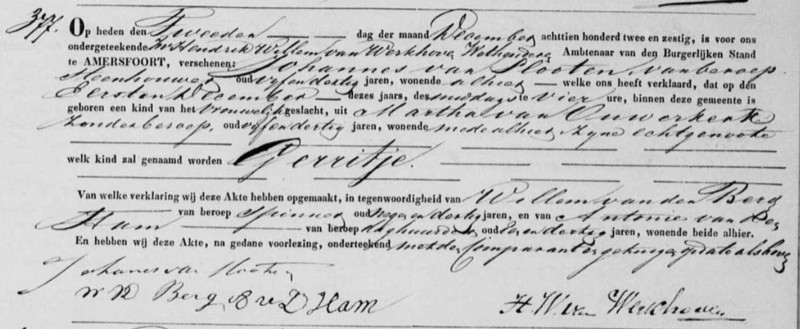 377.
Op heden den Tweeden dag der maand December achttien honderd twee en zestig, is voor ons
ondergeteekende Mr Hendrik Willem van Werkhoven Wethouder, Ambtenaar van den Burgerlijken Stand
te AMERSFOORT, verschenen: Johannes van Slooten, van beroep
Steenhouwer oud vyf en dertig jaren, wonende alhier welke ons heeft verklaard, dat op den
Eersten December dezes jaars, des middags te vier ure, binnen deze gemeente is
geboren een kind van het Vrouwelyk geslacht, uit Martha van Ouwerkerk
zonder beroep, oud vyf en dertig jaren, wonende mede alhier zyne echtgenoote
welk kind zal genaamd worden Gerritje.
Van welke verklaring wij deze Akte hebben opgemaakt, in tegenwoordigheid van Willem van den Berg
van beroep Spinner oud negen en dertig jaren, en van Antonie van der
Ham van beroep daghuurder oud en dertig jaren, wonende beide alhier.
En hebben wij deze Akte, na gedane voorlezing, onderteekend met den Comparant en getuigen, op date als boven
Johannes van Slooten
W VD Berg A v D Ham H. W. van Werkhoven